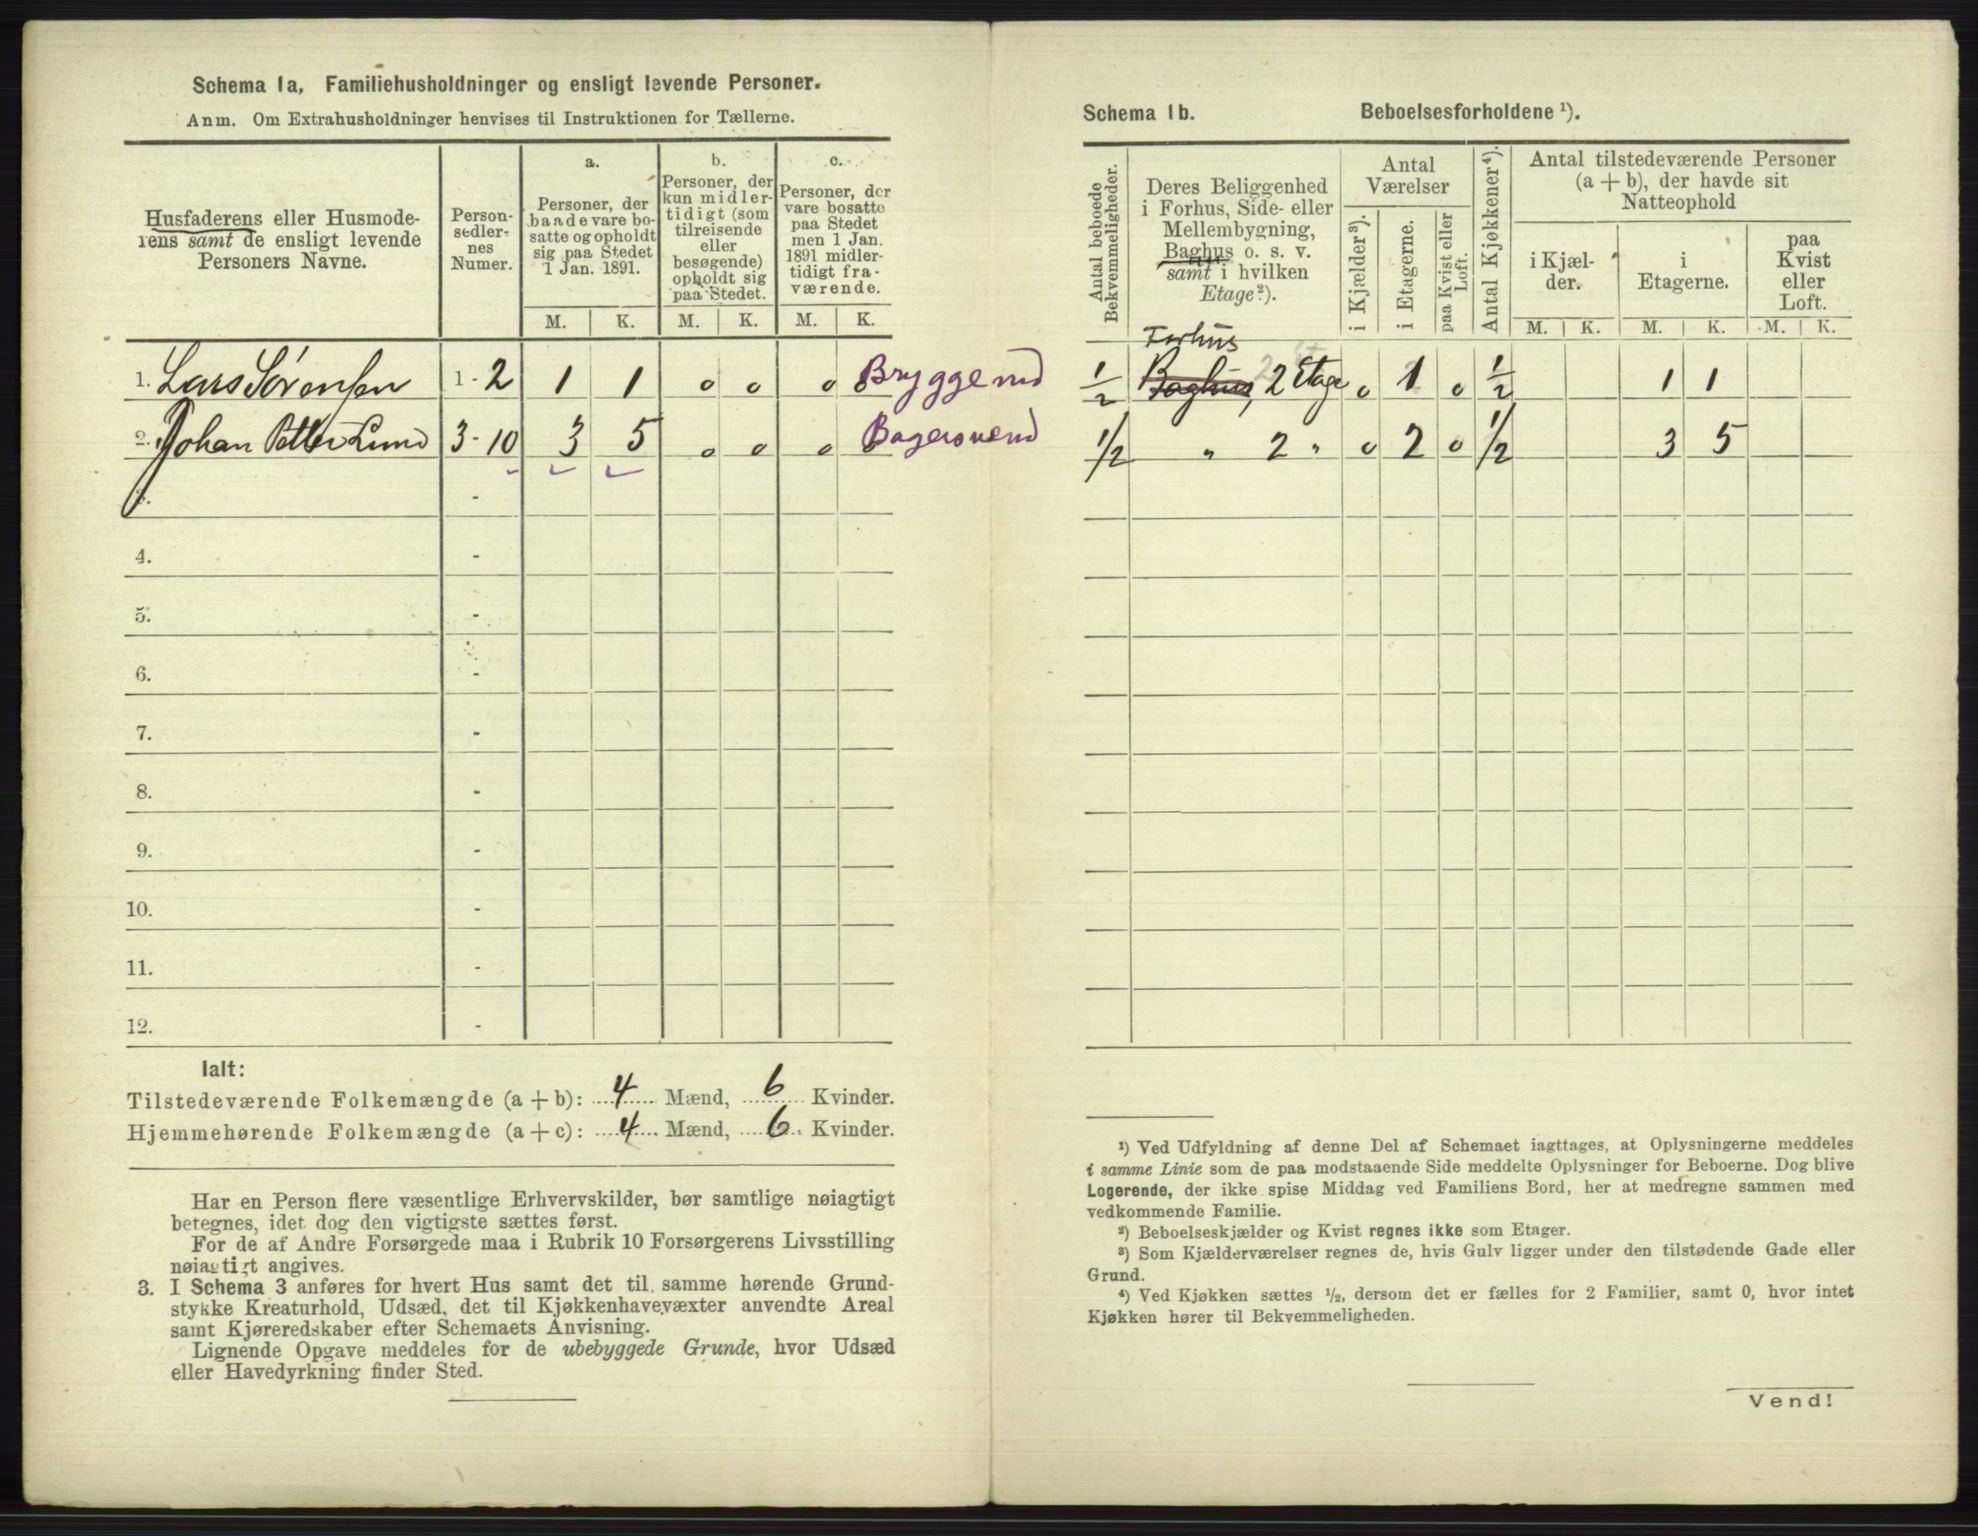 Schema 1a, Familiehusholdninger og ensligt levende Personer.
Anm. Om Extrahusholdninger henvises til Instruktionen for Tællerne.
Husfaderens eller Husmode-
rens samt de ensligt levende
Personers Navne.
Person-
sedler-
nes
Numer.
a.
Personer, der
baade vare bo-
satte og opholdt
sig paa Stedet
1 Jan. 1891.
b.
Personer, der
kun midler-
tidigt (som
tilreisende
eller
besøgende)
opholdt sig
paa Stedet.
c.
Personer, der
vare bosatte
paa Stedet
men 1 Jan.
1891 midler-
tidigt fra-
værende.
M. K. M. K. M. K.
1. Lars Sörensen 1 - 2 1 1 0 0 0 0 Bryggemd
2. Johan Petter Lund 3 - 10 3 5 0 0 0 0 Bagersvend
3. -
4. -
5. -
6. -
7. -
8. -
9. -
10. -
11. -
12. -
Ialt:
Tilstedeværende Folkemængde (a + b): 4 Mænd, 6 Kvinder.
Hjemmehørende Folkemængde (a + c): 4 Mænd, 6 Kvinder.
Har en Person flere væsentlige Erhvervskilder, bør samtlige nøiagtigt
betegnes, idet dog den vigtigste sættes først.
For de af Andre Forsørgede maa i Rubrik 10 Forsørgerens Livsstilling
nøiagtigt angives.
3. I Schema 3 anføres for hvert Hus samt det til samme hørende Grund-
stykke Kreaturhold, Udsæd, det til Kjøkkenhavevæxter anvendte Areal
samt Kjøreredskaber efter Schemaets Anvisning.
Lignende Opgave meddeles for de ubebyggede Grunde, hvor Udsæd
eller Havedyrkning finder Sted.
Schema 1b. Beboelsesforholdene ¹).
Antal beboede
Bekvemmeligheder.
Deres Beliggenhed
i Forhus, Side- eller
Mellembygning,
Baghus o. s. v.
samt i hvilken
Etage²).
Antal
Værelser
i Kjælder³).
i Etagerne.
paa Kvist eller
Loft.
Antal Kjøkkener⁴).
Antal tilstedeværende Personer
(a + b), der havde sit
Natteophold
i Kjæl-
der.
i
Etagerne.
paa
Kvist
eller
Loft.
M. K. M. K. M. K.
Forhus
1/2 Baghus, 2 Etage 0 1 0 1/2 1 1
1/2 " 2 " 0 2 0 1/2 3 5
¹) Ved Udfyldning af denne Del af Schemaet iagttages, at Oplysningerne meddeles
i samme Linie som de paa modstaaende Side meddelte Oplysninger for Beboerne. Dog blive
Logerende, der ikke spise Middag ved Familiens Bord, her at medregne sammen med
vedkommende Familie.
²) Beboelseskjælder og Kvist regnes ikke som Etager.
³) Som Kjælderværelser regnes de, hvis Gulv ligger under den tilstødende Gade eller
Grund.
⁴) Ved Kjøkken sættes ½, dersom det er fælles for 2 Familier, samt 0, hvor intet
Kjøkken hører til Bekvemmeligheden.
Vend!